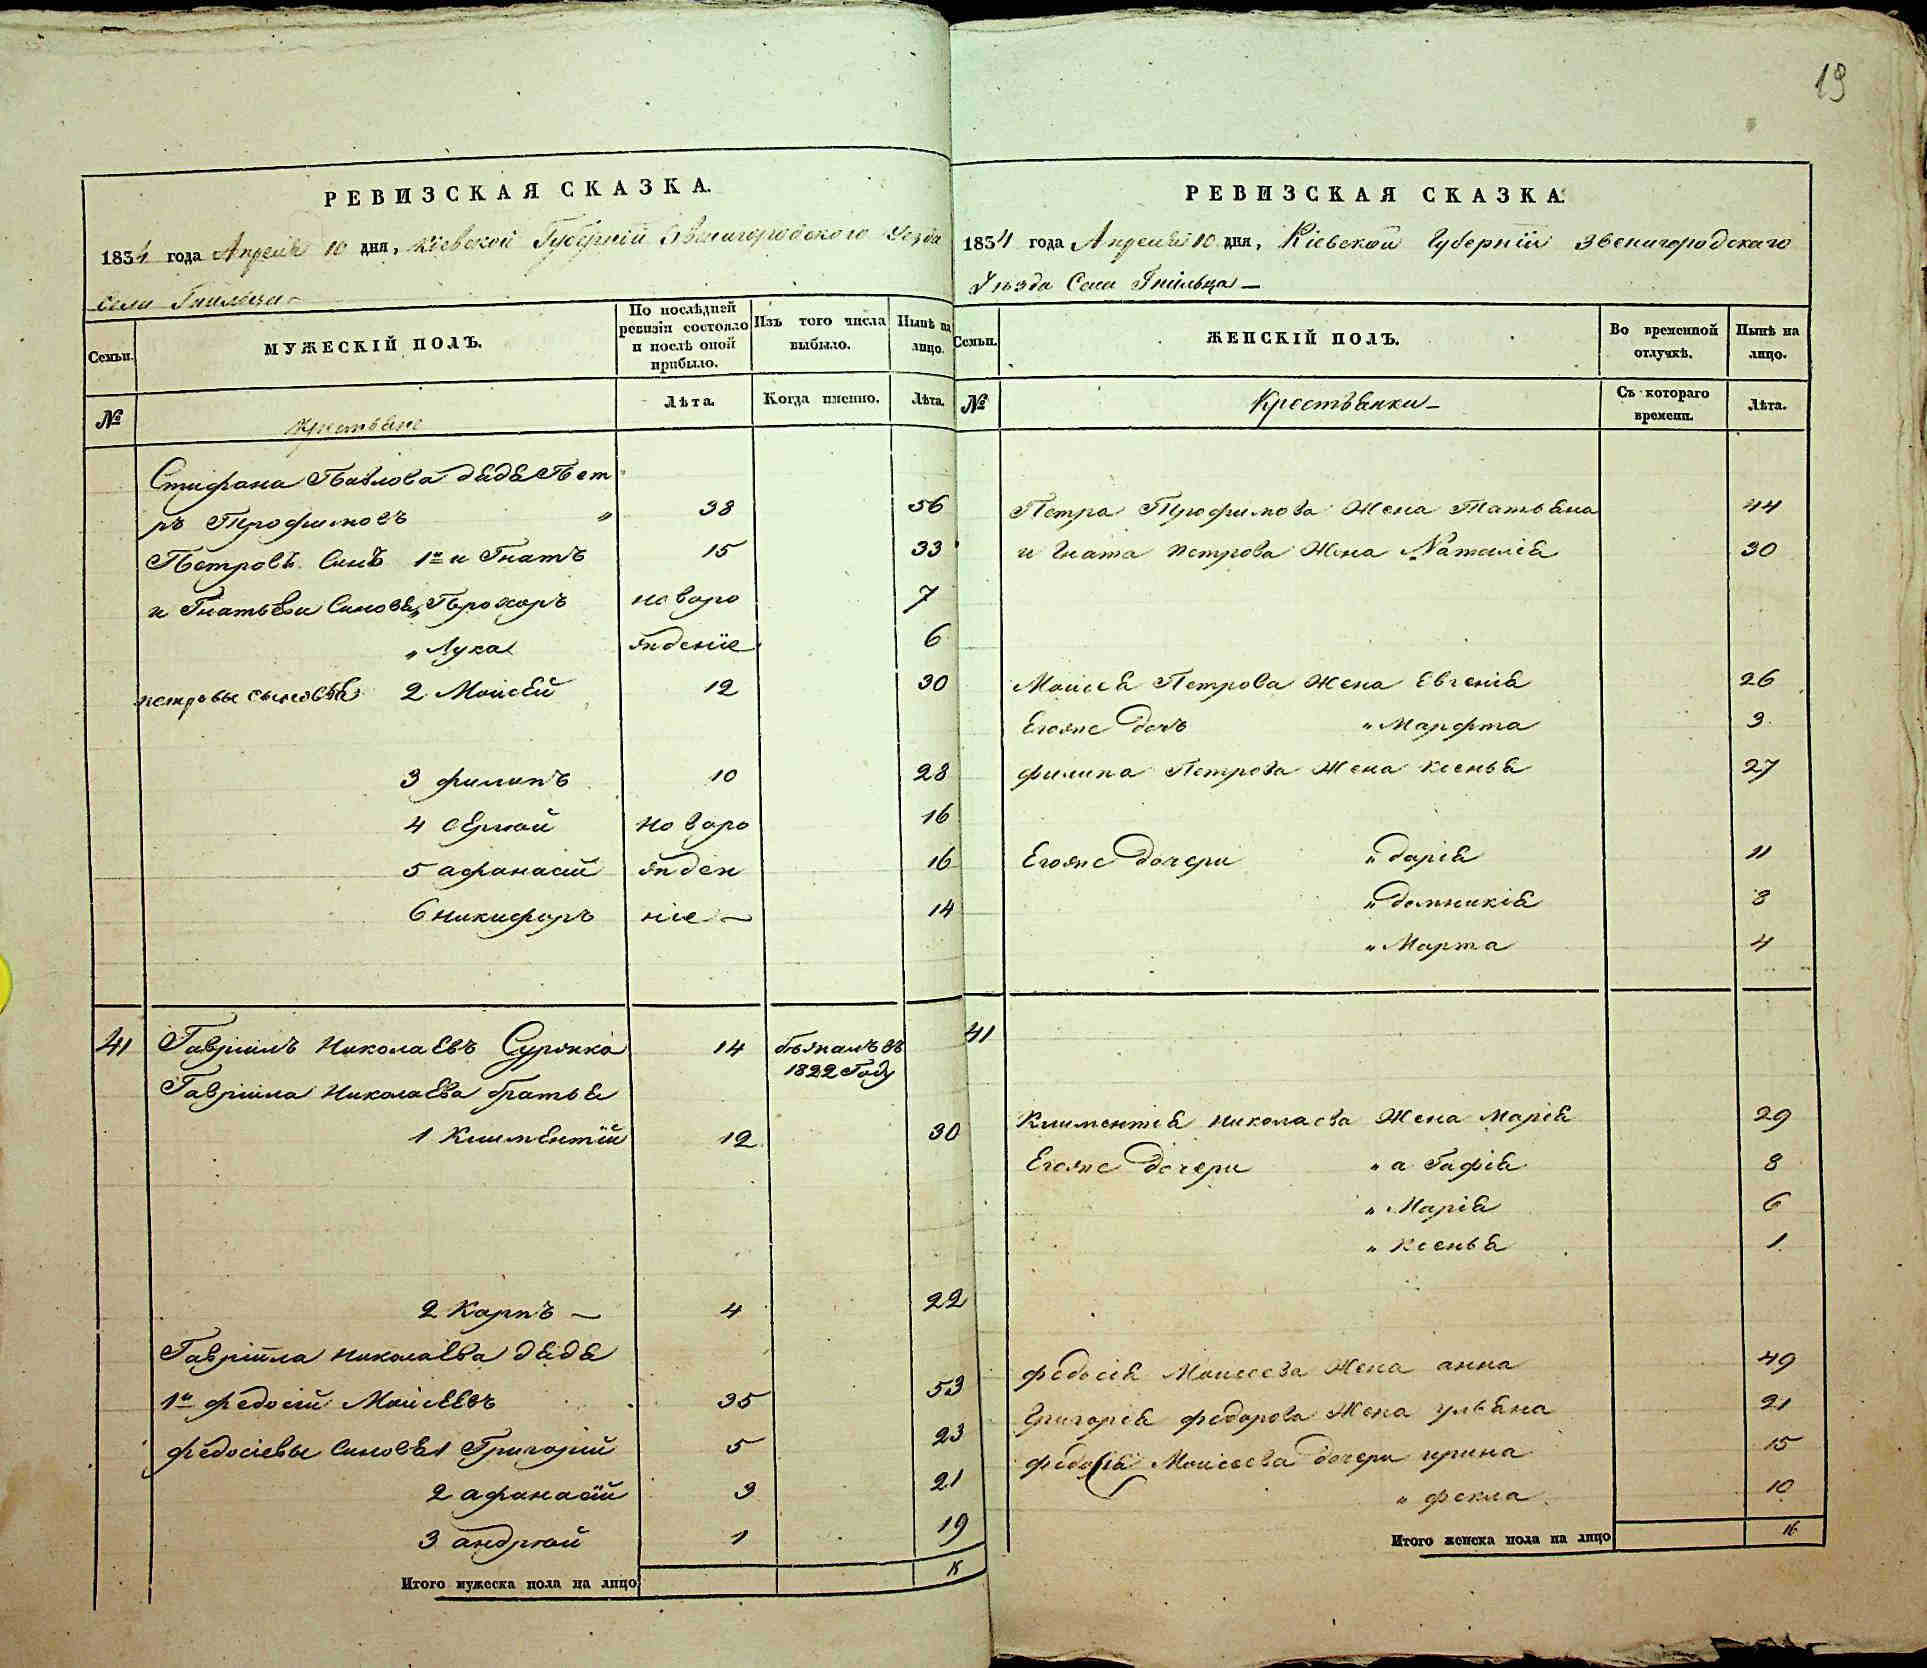 19
РЕВИЗСКАЯ СКАЗКА.
1834 года Апреля 10 дня, Кіевской Губерніи Звенигородского Уезда
Села Гнильца
Семьи.
МУЖЕСКІЙ ПОЛЪ.
По послѣдней ревизіи состояло и послѣ оной прибыло.
Изъ того числа выбыло.
Нынѣ на лицо.
№
Крестьяне
Лѣта.
Когда именно.
Лѣта.
Стифана Павлова дядя Пет
ръ Трофимовъ " 38 56
Петровъ Синъ 1й и Гнатъ 15 33
и Гнатьеви Синовя, Прохоръ новоро 7
" Лука жденіе 6
петровы сыновья 2 Моисей 12 30
3 филипъ 10 28
4 Сергей новоро 16
5 афанасій жден 16
6 никифоръ ніе — 14
41 Гавріилъ Николаевъ Суржко 14 бѣжалъ въ 1822 Году
Гавріила Николаева братья
1 Климентій 12 30
2 Карпъ — 4 22
Гавріила николаева дядя
1й федосій Моисеевъ 35 53
федосіевы Синовя 1 Григорій 5 23
2 афанасій 3 21
3 андрей 1 19
Итого мужеска пола на лицо
РЕВИЗСКАЯ СКАЗКА.
1834 года Апреля 10 дня, Кіевской Губерніи Звенигородскаго
Уѣзда Села Гнильца —
Семьи.
ЖЕНСКІЙ ПОЛЪ.
Во временной отлучкѣ.
Нынѣ на лицо.
№
Крестьянки —
Съ котораго времени.
Лѣта.
Петра Трофимова Жена Татьяна 44
и Гната петрова Жена Наталія 30
Моисея Петрова Жена Евгенія 26
Егоже Дочъ " Марфта 3
филипа Петрова Жена ксенья 27
Егоже Дочери " дарія 11
" домникія 8
" Марта 4
41
Климентія николаева Жена Марія 29
Егоже Дочери " а Гафія 8
" Марія 6
" ксенья 1
федосія Моисеева Жена анна 49
Григорія федорова Жена ульяна 21
федосія Моисеева Дочери ирина 15
" фекла 10
Итого женска пола на лицо 16